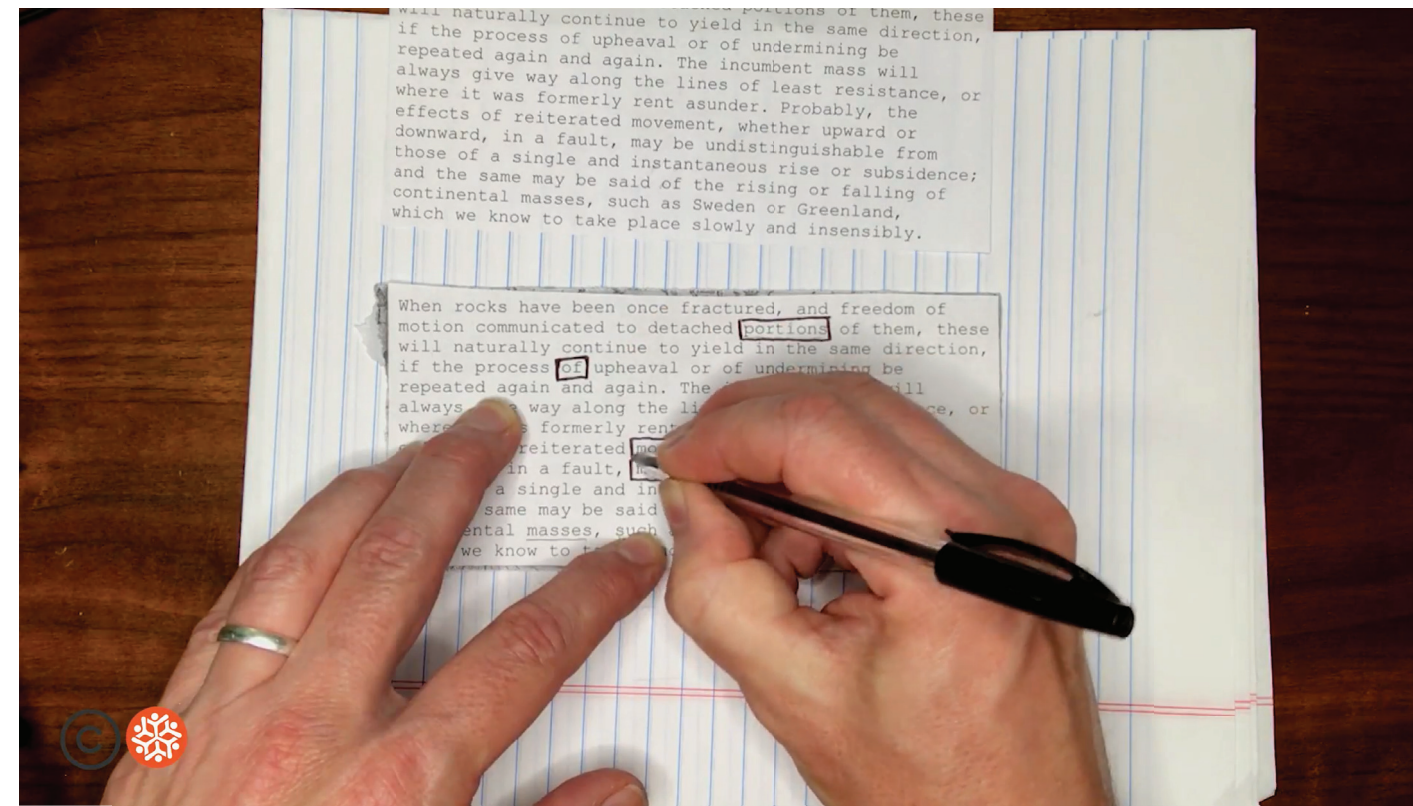 will naturally continue to yield in the same direction,
if the process of upheaval or of undermining be
repeated again and again. The incumbent mass will
always give way along the lines of least resistance, or
where it was formerly rent asunder. Probably, the
effects of reiterated movement, whether upward or
downward, in a fault, may be undistinguishable from
those of a single and instantaneous rise or subsidence;
and the same may be said of the rising or falling of
continental masses, such as Sweden or Greenland,
which we know to take place slowly and insensibly.
When rocks have been once fractured, and freedom of
motion communicated to detached portions of them, these
will naturally continue to yield in the same direction,
if the process of upheaval or of undermining be
repeated again and again. The
always way along the or
formerly rent
reiterated
in a fault,
a single and
same may be said
masses, such
we know to
©